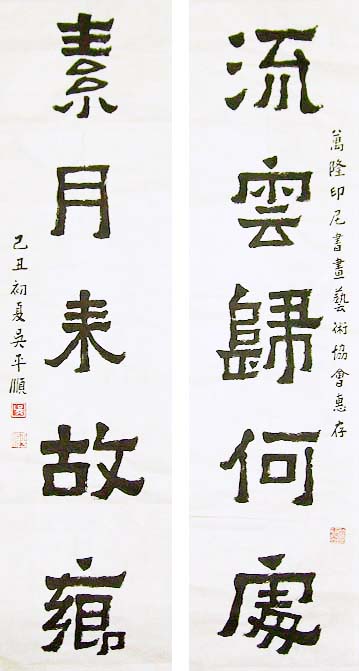 萬隆印尼書畫藝術協會惠存
流雲歸何處
素月来故鄉
己丑初夏吳平順
吳